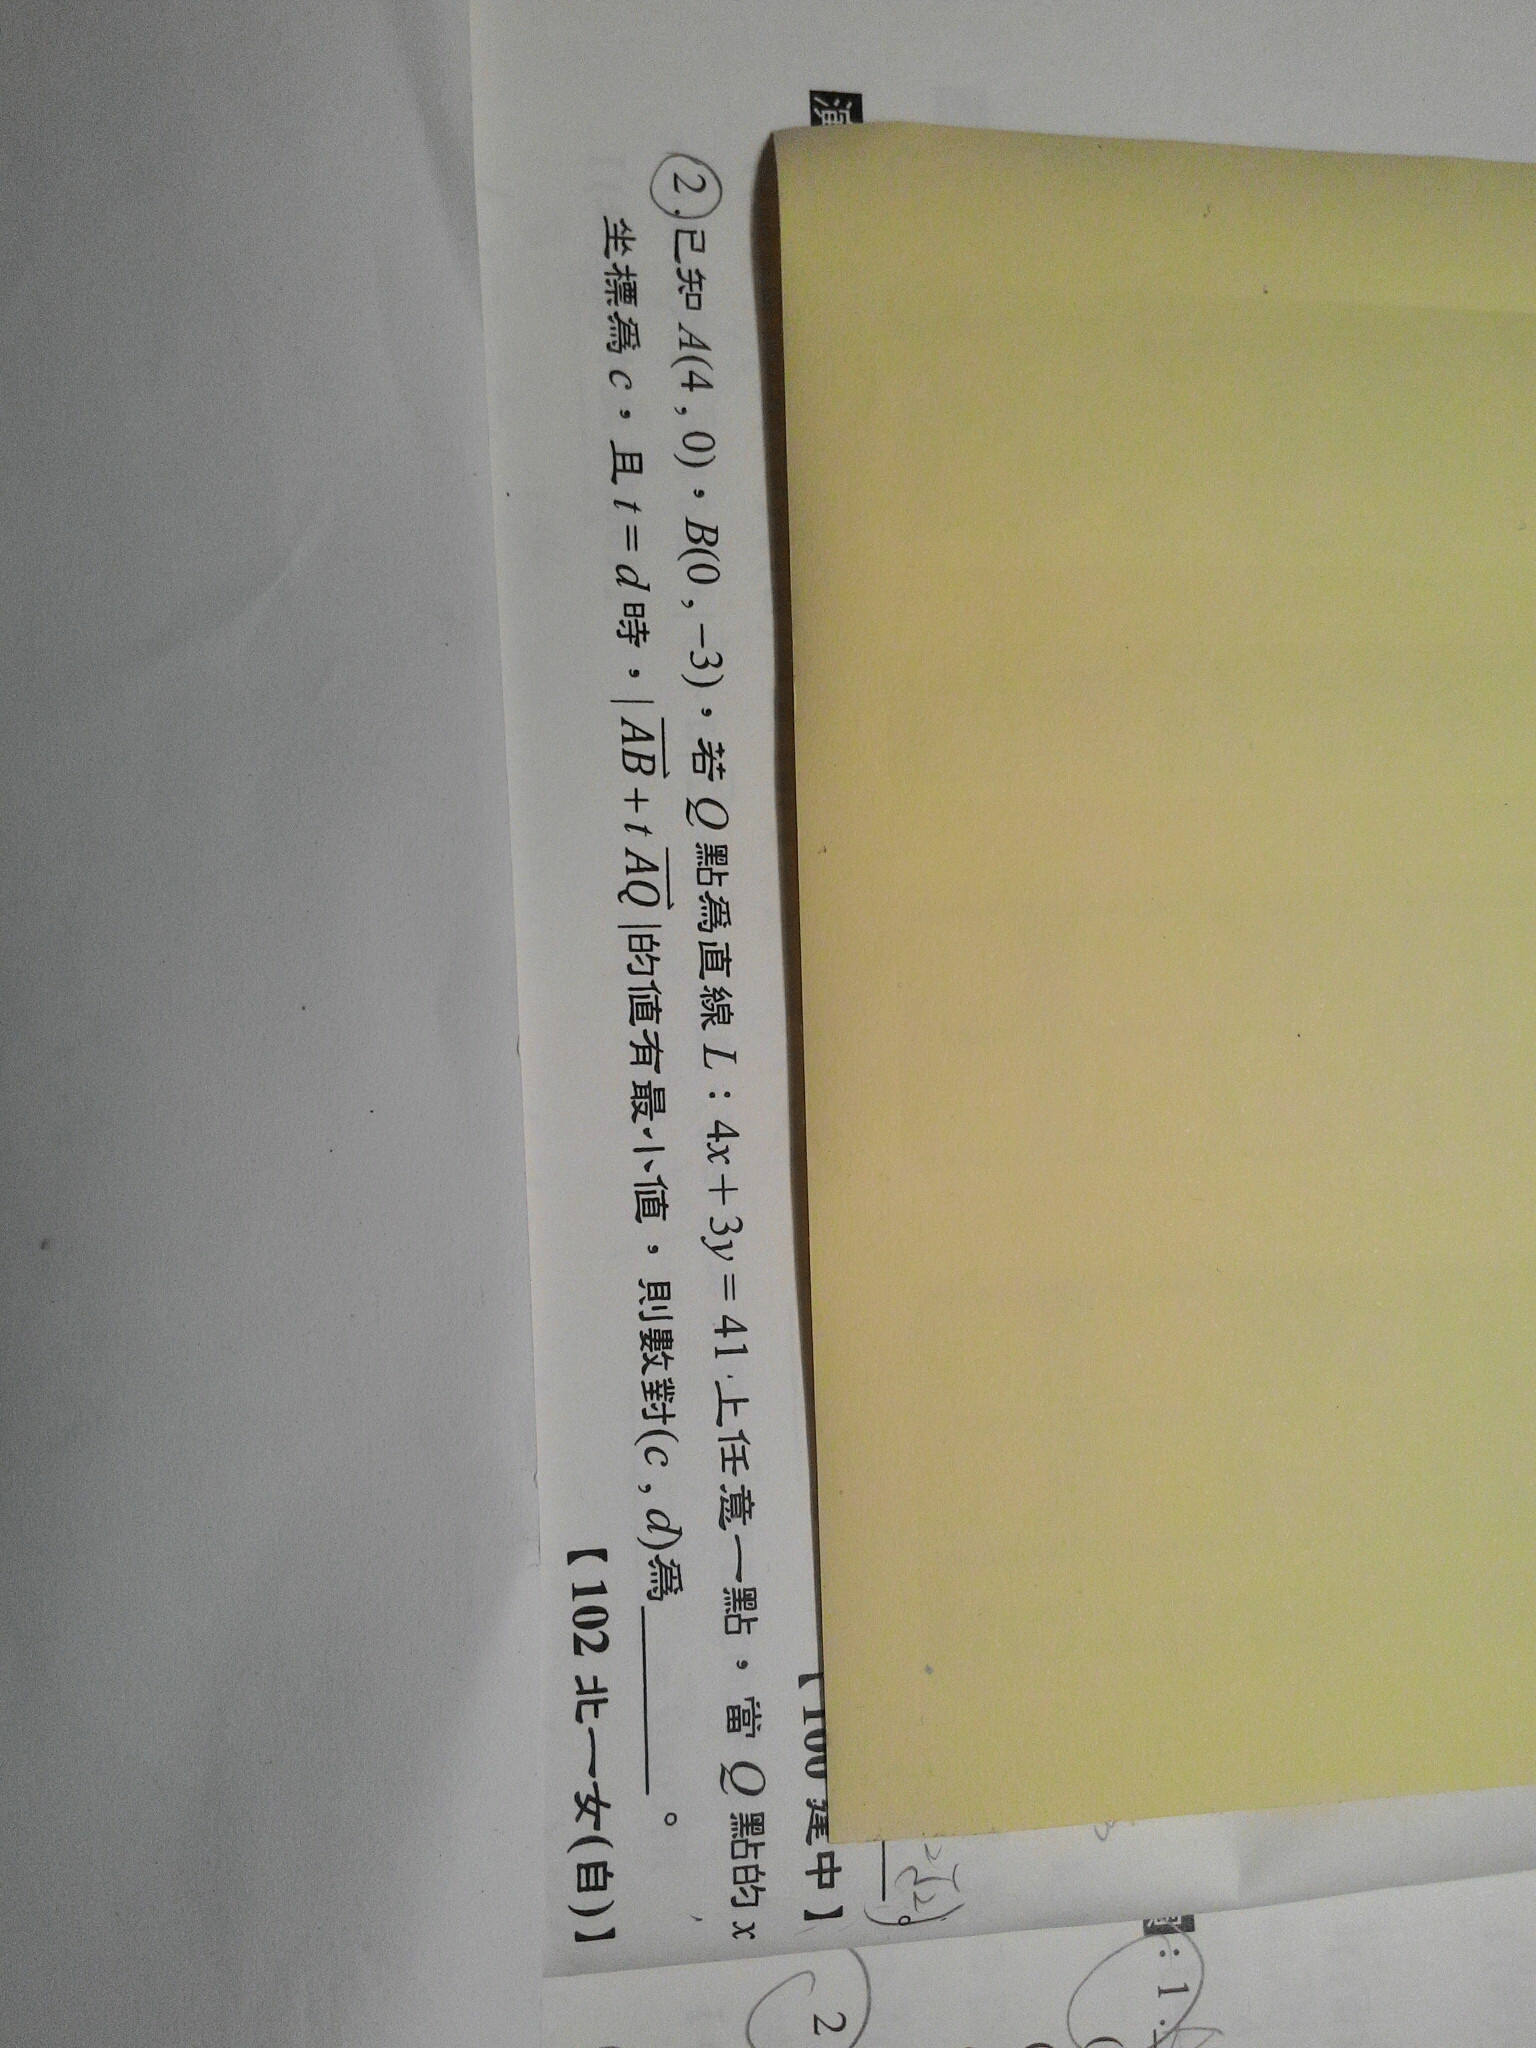 【100 建中】
2. 已知 A(4 , 0),B(0 , −3),若 Q 點為直線 L:4x+3y=41 上任意一點,當 Q 點的 x
坐標為 c,且 t=d 時,|AB⃗+t AQ⃗|的值有最小值,則數對(c , d)為＿＿＿＿。
【102 北一女(自)】
:1.
2